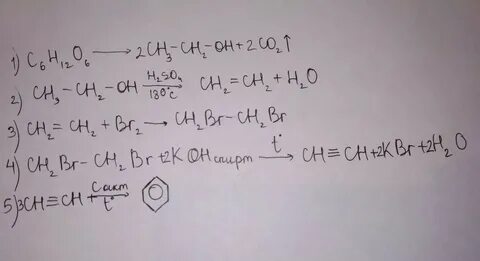 1) C₆H₁₂O₆ ⟶ 2CH₃-CH₂-OH+2CO₂↑
2) CH₃-CH₂-OH H₂SO₄ 180°C → CH₂=CH₂+H₂O
3) CH₂=CH₂+Br₂ → CH₂Br-CH₂Br
4) CH₂Br-CH₂Br+2KOH спирт t° → CH≡CH+2KBr+2H₂O
5) 3CH≡CH + Cакт t° →